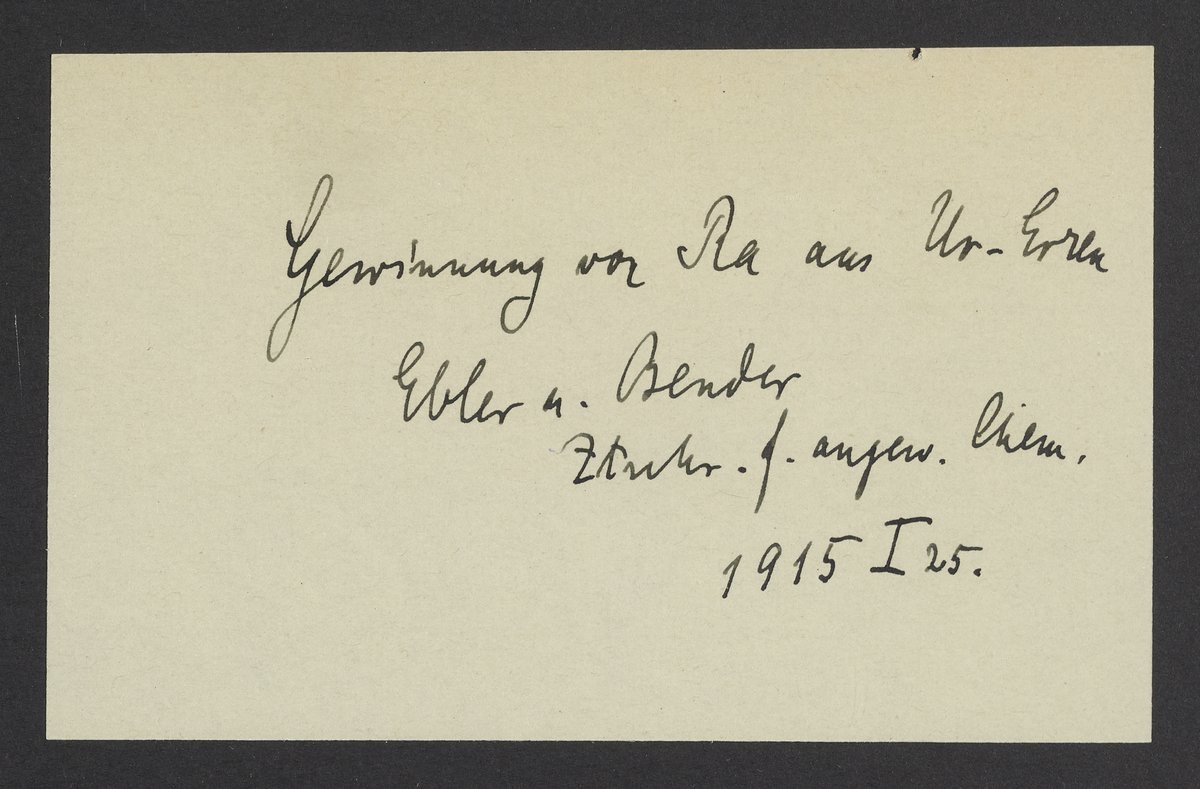 Gewinnung von Ra aus Ur-Erzen
Ebler u. Bender
Ztschr. f. angew. Chem.
1915 I 25.